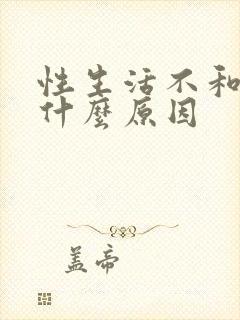 性生活不和
什麼原因
盖帝